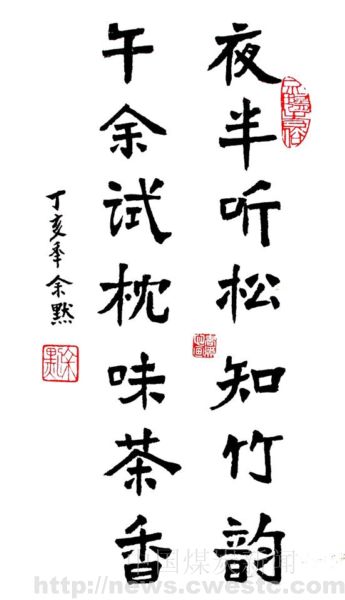 夜半听松知竹韵
午余试枕味茶香
丁亥年余默
http://news.cwestc.com